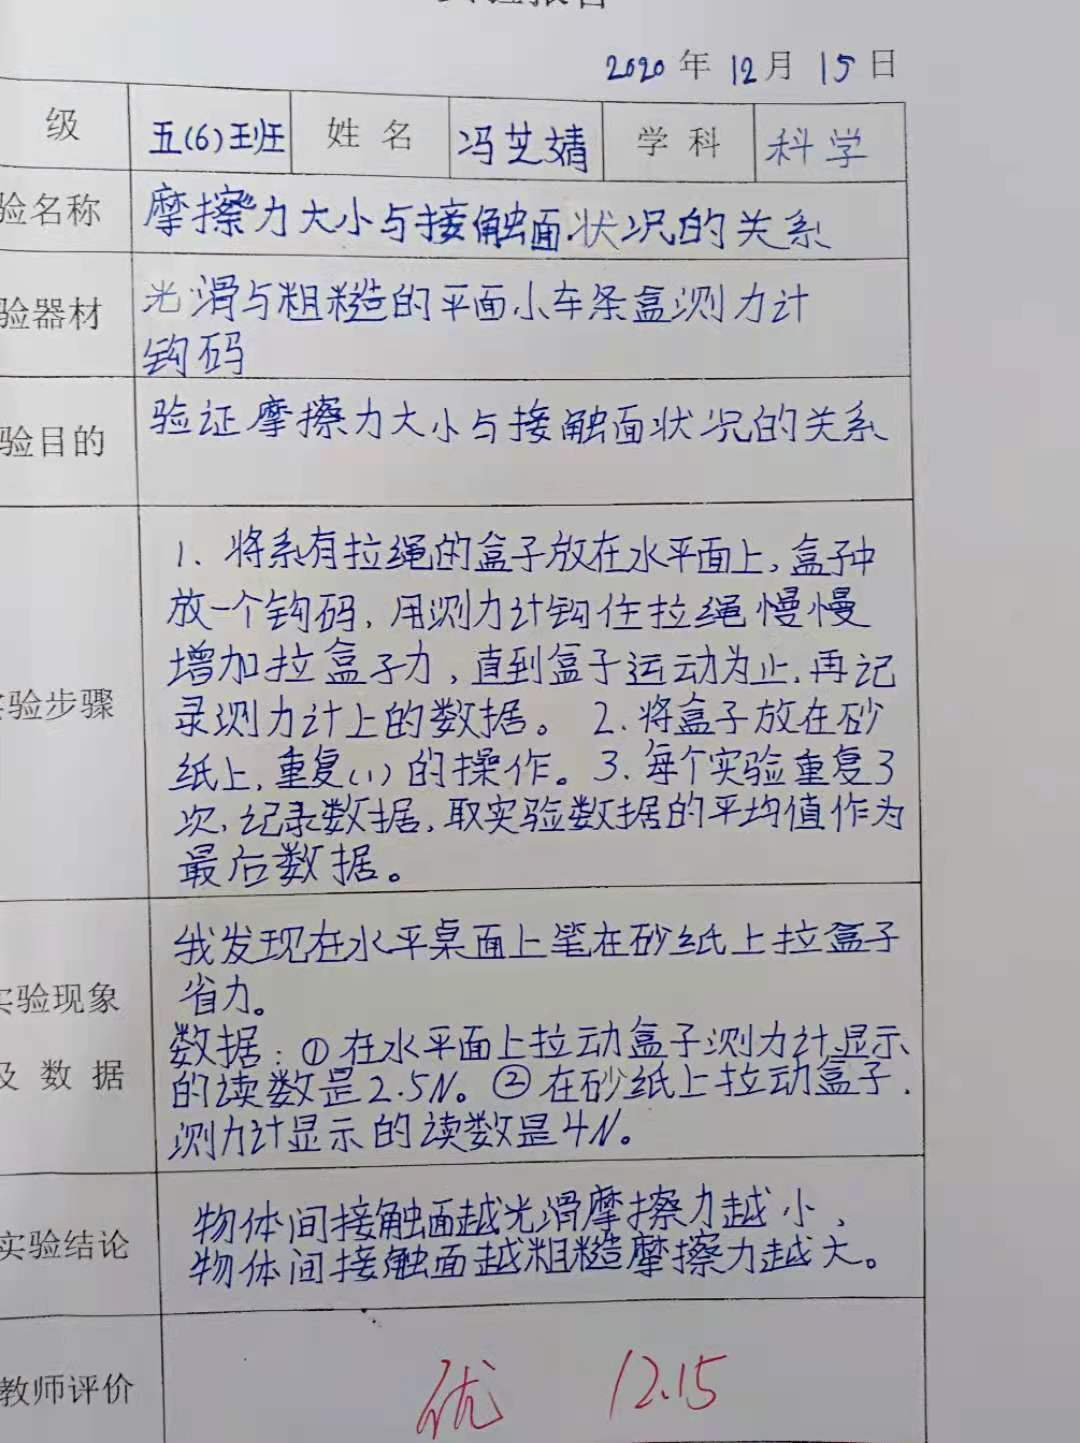 2020 年 12 月 15 日
级 五(6)班 姓 名 冯芝婧 学 科 科学
验名称 摩擦力大小与接触面状况的关系
验器材 光滑与粗糙的平面小车条盒测力计
钩码
验目的 验证摩擦力大小与接触面状况的关系
1. 将系有拉绳的盒子放在水平面上,盒子中
放一个钩码,用测力计钩住拉绳慢慢
增加拉盒子力,直到盒子运动为止.再记
实验步骤 录测力计上的数据。 2.将盒子放在砂
纸上,重复(1)的操作。3.每个实验重复3
次,纪录数据,取实验数据的平均值作为
最后数据。
我发现在水平桌面上笔在砂纸上拉盒子
实验现象 省力。
及 数 据 数据:①在水平面上拉动盒子测力计显示
的读数是2.5N。②在砂纸上拉动盒子.
测力计显示的读数是4N。
物体间接触面越光滑摩擦力越小,
实验结论 物体间接触面越粗糙摩擦力越大。
教师评价 优 12.15